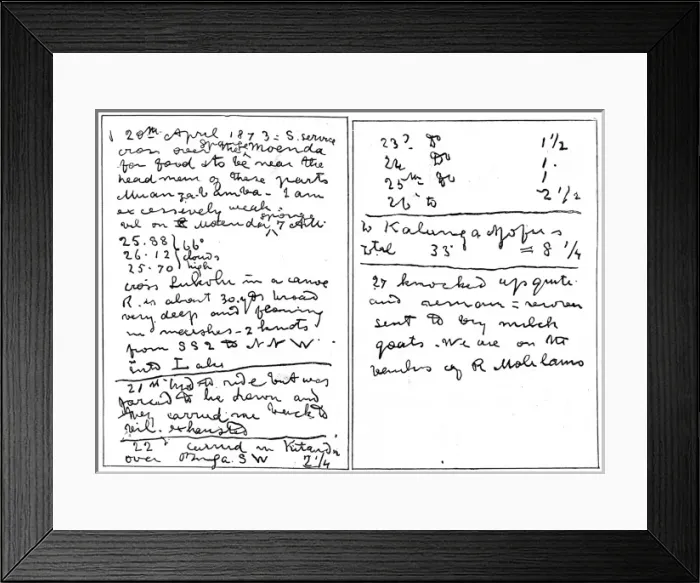 20th April 1873 = S. service
cross over the sponge Moenda
for food & to be near the
headman of these parts
Muanzabamba - I am
excessively weak
vil on Moenda sponge 7 AM
25.88 } 66°
26.12 } clouds
25.70 } high
cross Lukolu in a canoe
R. is about 30 yds broad
very deep and flowing
in marshes - 2 knots
from SSE to NNW
into Lake
21st tried to ride but was
forced to lie down and
they carried me back to
vil. exhausted
22d carried in Kitanda
over Buga. SW 2 1/4
23d Do 1 1/2
24 Do 1.
25th Do 1
26 to 2 1/2
to Kalunganjofus
total 33 = 8 1/4
27 knocked up quite
and remain = recover
sent to buy milch
goats. We are on the
banks of R Molilamo